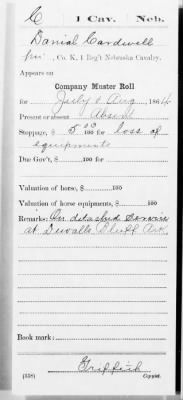 C 1 Cav. Neb.
Danial Cardwell
Pvt, Co. K, 1 Reg't Nebraska Cavalry.
Appears on
Company Muster Roll
for July & Aug, 1864
Present or absent Absent
Stoppage, $ 5 23/100 for loss of
equipments
Due Gov't, $ 100 for
Valuation of horse, $ 100
Valuation of horse equipments, $ 100
Remarks: On detached Service
at Duvalls Bluff Ark
Book mark:
Griffith
(358) Copyist.